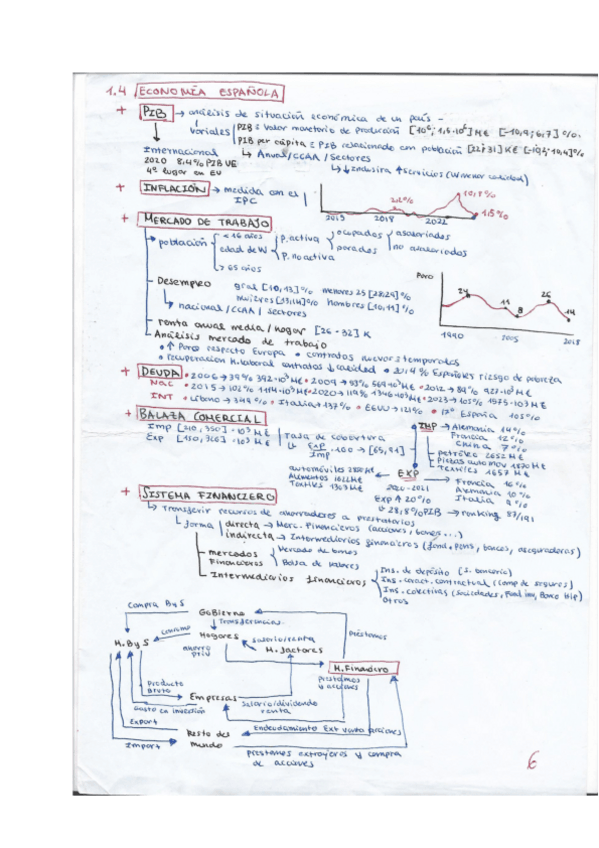 1.4 ECONOMÍA ESPAÑOLA
+ PIB → análisis de situación económica de un país -
variables PIB = Valor monetario de producción [10⁶; 1,5·10⁶] M€ [-10,9; 6,7] %.
PIB per cápita = PIB relacionado con población [22; 31] K€
Internacional
↳ Anual/CCAA/Sectores
2020 8,4% PIB UE
↳ ↓ Industria ↑ Servicios (W menor calidad)
4º lugar en EU
+ INFLACIÓN → medida con el IPC
10,8%
1,5%
2015 2018 2022
+ MERCADO DE TRABAJO
población
< 16 años
edad de W
P. activa
ocupados
asalariados
no asalariados
parados
P. no activa
> 65 años
- Desempleo gral [10,13]% menores 25 [28,29]%
mujeres [13,14]% hombres [10,11]%
↳ nacional / CCAA / Sectores
- renta anual media/hogar [26 - 32] K
- Análisis mercado de trabajo
• ↑ Paro respecto Europa • contratos nuevos temporales
• recuperación n. laboral contratos ↓ calidad • 21,4% Españoles riesgo de pobreza
Paro
24
11
8
26
14
1990 2005 2018
+ DEUDA • 2006 → 39% 392·10³ M€ • 2009 → 53% 569·10³ M€ • 2012 → 89% 927·10³ M€
NAC • 2015 → 102% 1114·10³ M€ • 2020 → 119% 1346·10³ M€ • 2023 → 105% 1575·10³ M€
INT • Líbano → 349% • Italia → 137% • EEUU → 121% • 17º España 105%
+ BALAZA COMERCIAL
Imp [210, 350]·10³ M€
Exp [150, 360]·10³ M€
Tasa de cobertura
↳ Exp/Imp · 100 → [65, 91]
IMP → Alemania 14%
Francia 12%
China 7%
petróleo 2652 M€
Piezas automóv 1870 M€
Textiles 1657 M€
automóviles 2880 M€
Alimentos 1622 M€
Textiles 1363 M€
EXP
→ Francia 16%
Alemania 10%
Italia 9%
2020-2021
Exp ↑ 20%
↳ 28,8% PIB → ranking 87/191
+ SISTEMA FINANCIERO
↳ Transferir recursos de ahorradores a prestatarios
↳ forma directa → Merc. Financieros (acciones, bonos...)
indirecta → Intermediarios financieros (fond. pens, bancos, aseguradoras)
- mercados Financieros
Mercado de bonos
Bolsa de valores
- Intermediarios financieros
Ins. de depósito (S. bancario)
Ins. caract. contractual (comp de seguros)
Ins. colectivas (Sociedades, Fond inv, Banco hip)
Otros
Compra ByS
Gobierno
Transferencias
préstamos
consumo
Hogares
Salario/renta
M. ByS
ahorro priv
M. factores
M. Financiero
préstamos y acciones
Producto Bruto
Empresas
Salario/dividendo renta
Gasto en inversión
Export
Resto del mundo
Endeudamiento Ext venta acciones
Import
préstamos extranjeros y compra de acciones
6